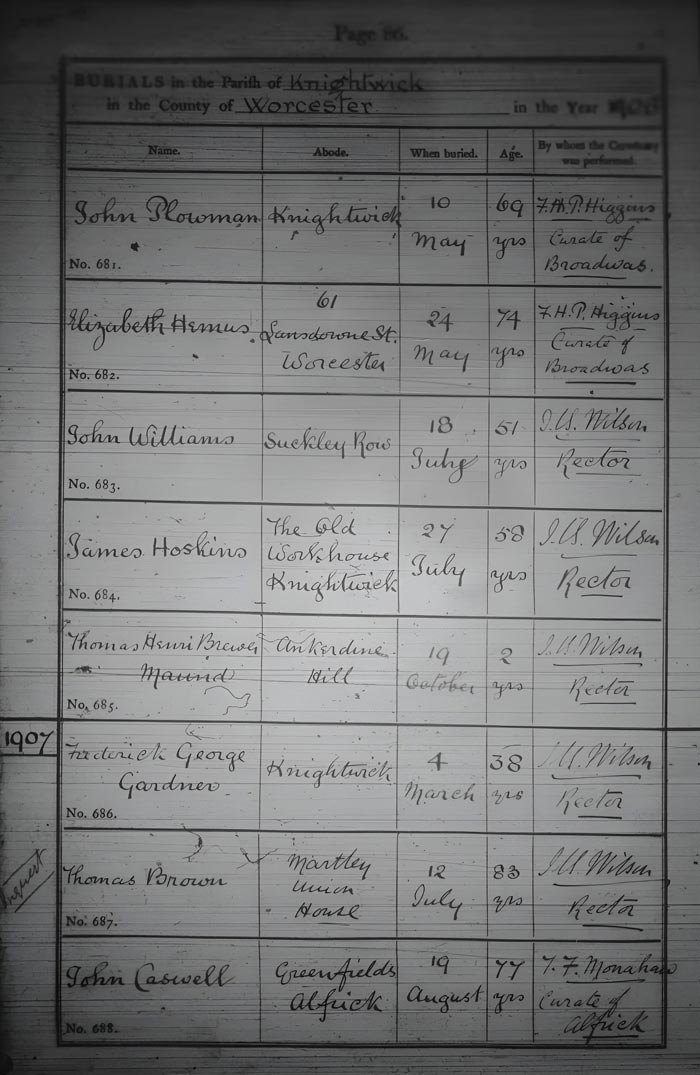 Page 86.
BURIALS in the Parish of Knightwick
in the County of Worcester in the Year 1906
Name. Abode. When buried. Age. By whom the Ceremony was performed.
John Plowman
No. 681.
Knightwick
10
May
69
yrs
F.H.P. Higgins
Curate of
Broadwas.
Elizabeth Hemus.
No. 682.
61
Lansdowne St.
Worcester
24
May
74
yrs
F.H.P. Higgins
Curate of
Broadwas
John Williams
No. 683.
Suckley Row
18
July
51
yrs
Wilson
Rector
James Hoskins
No. 684.
The Old
Workhouse
Knightwick
27
July
58
yrs
Wilson
Rector
Thomas Henri Brewer
Maund
No. 685.
Ankerdine
Hill
19
October
2
yrs
Wilson
Rector
1907
Frederick George
Gardner
No. 686.
Knightwick
4
March
38
yrs
Wilson
Rector
Inquest
Thomas Brown
No. 687.
Martley
Union
House
12
July
83
yrs
Wilson
Rector
John Caswell
No. 688.
Greenfields
Alfrick
19
August
77
yrs
T. F. Monahan
Curate of
Alfrick